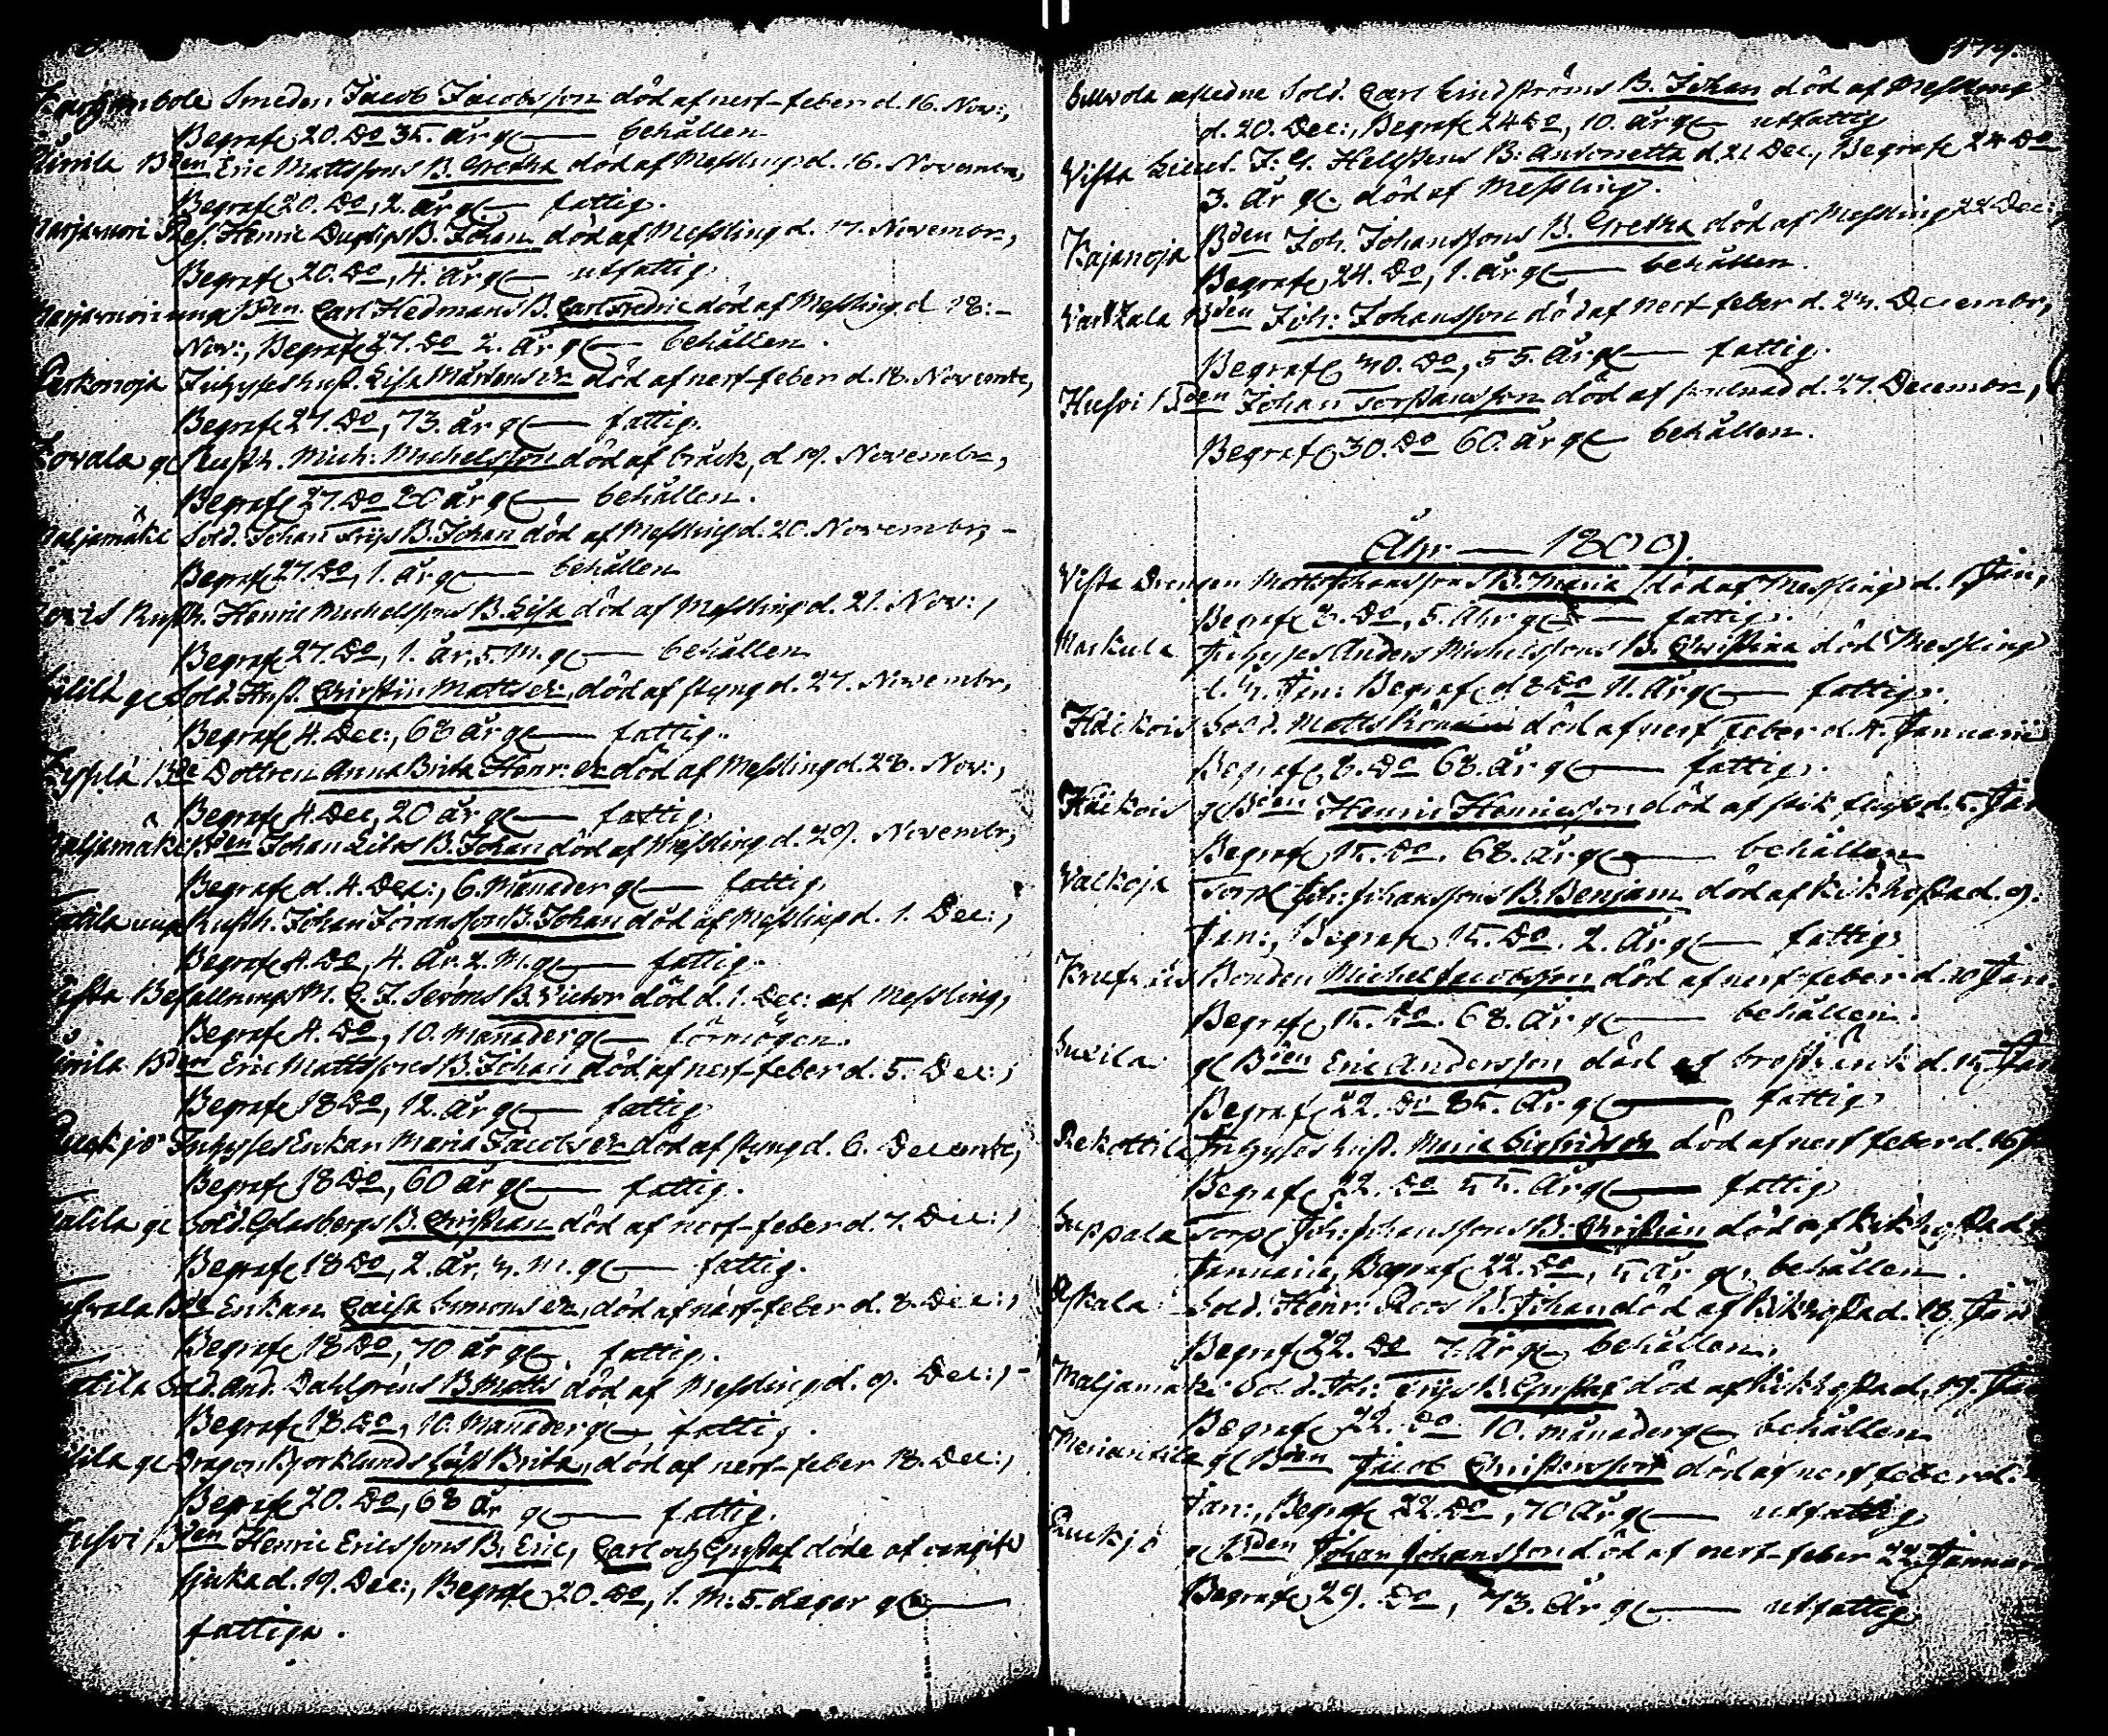 Smeden Jacob Jacobsson död af nerf-feber d. 16. Nov:,
Begrafe 20. Do 35. år ge — behållen
Bden Eric Mattssons B. Gretha död af Messling d. 16. Novembr,
Begrafe 20. Do, 2. år ge — fattig.
Henric B. Johan död af Messling d. 17. Novembr,
Begrafe 20. Do, 4. år ge — utfattig
Bden Carl Hedmans B. Carl Fredric död af Messling d 18:-
Nov:, Begrafe 27. Do 2. år ge — behållen.
Parkonoja Inhyses hust. Lisa Mårtens dr död af nerf-feber d. 18. Novembr,
Begrafe 27. Do, 73. år ge — fattig.
ge Rusth. Mich: Michelsson död af bråck, d 19. Novembr,
Begrafe 27. Do 80 år ge — behållen.
Sold. Johan Frijs B. Johan död af Messling d. 20. Novembr, -
Begrafe 27. Do, 1. år ge — behållen
Rusth. Henric Michelssons B. Lisa död af Messling d. 21. Nov:,
Begrafe 27. Do, 1. år, 5. M. ge — behållen
ge Sold. Hust. Christin Matts dr, död af styng d. 27. Novembr,
Begrafe 4. Dec:, 68 år ge — fattig.
Bde Dottren Anna Brita Henr: dr död af Messling d. 28. Nov:,
Begrafe 4. Dec, 20 år ge — fattig,
Bden Johan B. Johan död af Messling d. 29. Novembr,
Begrafe d. 4. Dec:, 6. Månader ge — fattig,
Rusth. Johan B. Johan död af Messling d. 1. Dec:,
Begrafe 4. Do, 4. år. 2. M. ge — fattig.
Befallningsm. C. J. B. Victor död d. 1. Dec: af Messling,
Begrafe 4. Do, 10. Månader ge — förmögen.
Bden Eric Mattssons B. Johan död af nerf-feber d. 5. Dec:,
Begrafe 18 Do, 12. år ge — fattig
Inhyses Enkan Maria Jacobs dr död af styng d. 6. Decembr,
Begrafe 18 Do, 60 år ge — fattig.
ge Sold. Glasbergs B. Christian död af nerf-feber d. 7. Dec:,
Begrafe 18 Do, 2. år, 3. m. ge — fattig.
Bde Enkan Caisa Simons dr, död af nerf-feber d. 8. Dec:,
Begrafe 18 Do, 70 år ge, fattig.
Sold. And. Dahlgrens B. Matts död af Messling d. 9. Dec:, -
Begrafe 18. Do, 10. Månader ge — fattig.
ge Dragon Björklunds hust Brita, död af nerf-feber 18. Dec:,
Begrafe 20. Do, 68 år ge — fattig.
Bden Henric Ericssons B. Eric, Carl och Gustaf döde af
d. 19. Dec:, Begrafe 20. Do, 1. M: 5. dagar ge —
fattiga.
179.
Sold. Carl Lindströms B. Johan död af Messling
d. 20. Dec:, Begrafe 24 Do, 10. år ge utfattig
Vista Lieut. J: G. B: Antonetta d. 21 Dec, Begrafe 24 Do
3. År ge. död af Messling.
Kajanoja Bden Joh. Johanssons B. Gretha död af Messling 22 Dec:
Begrafe 24. Do, 1. år ge — behållen.
Bden Joh: Johansson död af nerf-feber d. 23. Decembr,
Begrafe 30. Do, 55. år ge — fattig.
Bden Johan död af d. 27. Decembr,
Begrafe 30. Do 60. år ge behållen.
Åhr — 1809.
Vista Drengen Matts Johanssons B. Maria död af Messling d. 1. Jan,
Begrafe 8. Do, 5. Åhr ge — fattig.
Markula Inhyses Anders Michelssons B. Christina död Messling
d. 3. Jan: Begrafe d 8 Do 11. År ge — fattig.
Häikois Sold. Matts död af nerf Feber d. 4. Januarii
Begrafe 8. Do 68. år ge — fattig.
Häikois ge Bden Henric Henricsson död af d. 5. Jan
Begrafe 15. Do, 68. år ge — behållen
Valkoja Torp. Joh: Johanssons B. Benjam död af Kikhosta d. 9.
Jan:, Begrafe 15. Do. 2. År ge — fattig
Bonden Michel Jacobsson död af nerf-feber d. 10 Jan.
Begrafe 15. Do. 68. År ge — behållen.
ge Bden Eric Andersson död af d. 15. Jan
Begrafe 22. Do 85. År ge — fattig
Rekottila Inhyses hust. Maria Sigfrids dr död af nerf feber d. 16 Ja
Begrafe 22. Do 55. År ge — fattig
Suppala Torp. Joh: Johanssons B. Christian död af Kikhosta d
Januarii, Begrafe 22. Do, 5 år ge, behållen.
Sold. Henr: Roos B. Johan död af Kikhosta d. 18. Jan
Begrafe 22. Do 7. År ge behållen.
Maljamäki Sold. Joh: Frijs B. Gustaf död af Kikhosta d, 19. Jan
Begrafe 22. Do 10. månader ge behållen
ge Bden Jacob Christersson död af nerf feber d.
Jan:, Begrafe 22. Do, 70 År ge — utfattig
ge Bden Johan Johansson död af nerf-feber 22. Januar
Begrafe 29. Do, 73. År ge — utfattig